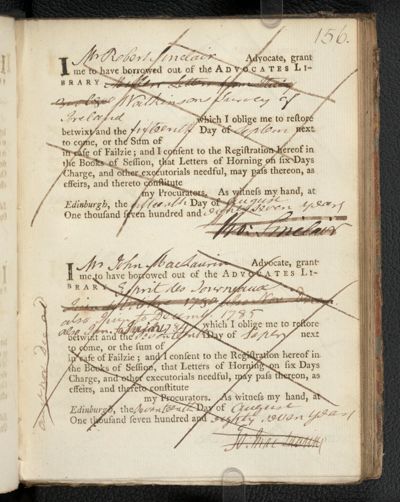 156.
I Mr Robert Sinclair Advocate, grant
me to have borrowed out of the ADVOCATES LI-
BRARY
Watkinsons Survey of
Ireland which I oblige me to restore
betwixt and the fifteenth Day of Septem next
to come, or the Sum of
in case of Failzie; and I consent to the Registration hereof in
the Books of Session, that Letters of Horning on six Days
Charge, and other executorials needful, may pass thereon, as
effeirs, and thereto constitute
my Procurators. As witness my hand, at
Edinburgh, the fifteenth Day of August
One thousand seven hundred and eighty seven years
Ro. Sinclair
I Mr John MacLaurin Advocate, grant
me to have borrowed out of the ADVOCATES LI-
BRARY Esprit des Journeaux
1785
also Jun 1781 which I oblige me to restore
betwixt and the Seventeenth Day of Septem next
to come, or the sum of
in case of Failzie; and I consent to the Registration hereof in
the Books of Session, that Letters of Horning on six Days
Charge, and other executorials needful, may pass thereon, as
effeirs, and thereto constitute
my Procurators. As witness my hand, at
Edinburgh, the Seventeenth Day of August
One thousand seven hundred and eighty seven years
Jo. MacLaurin